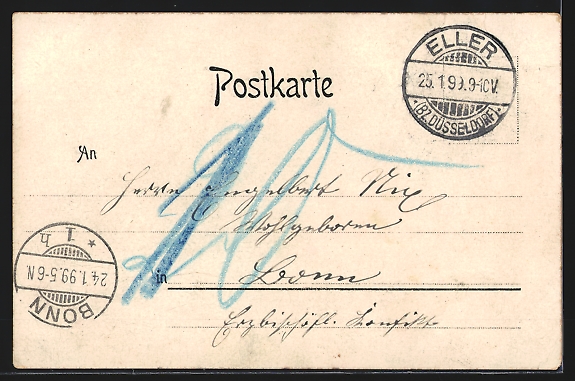 Postkarte
ELLER
25.1.99.9-10V.
*(BZ.DÜSSELDORF)*
An
10
Herrn Engelbert Nix
Wohlgeboren
in Bonn
Erzbischöfl. Konvikt
BONN
24.1.99.5-6N.
* 1 h